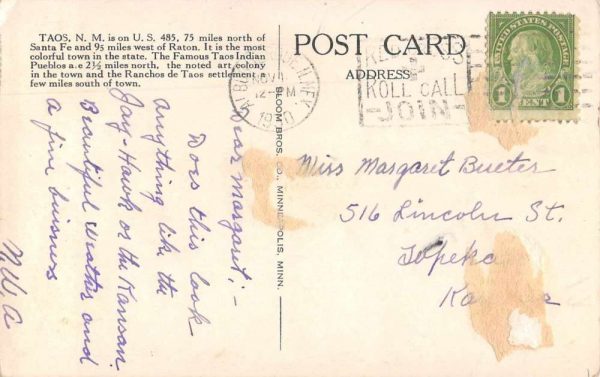 TAOS, N. M. is on U. S. 485, 75 miles north of
Santa Fe and 95 miles west of Raton. It is the most
colorful town in the state. The Famous Taos Indian
Pueblos a e 2½ miles north, the noted art colony
in the town and the Ranchos de Taos settlement a
few miles south of town.
POST CARD
ADDRESS
UNITED STATES POSTAGE
1 CENT 1
NOV
12 M
RED CROSS
ROLL CALL
JOIN
BLOOM BROS. CO., MINNEAPOLIS, MINN.
Dear Margaret; -
Does this look
anything like the
Jay-Hawk or the Kansan.
Beautiful weather and
a fine business
M.W.A
Miss Margaret Bueter
516 Lincoln St.
Topeka